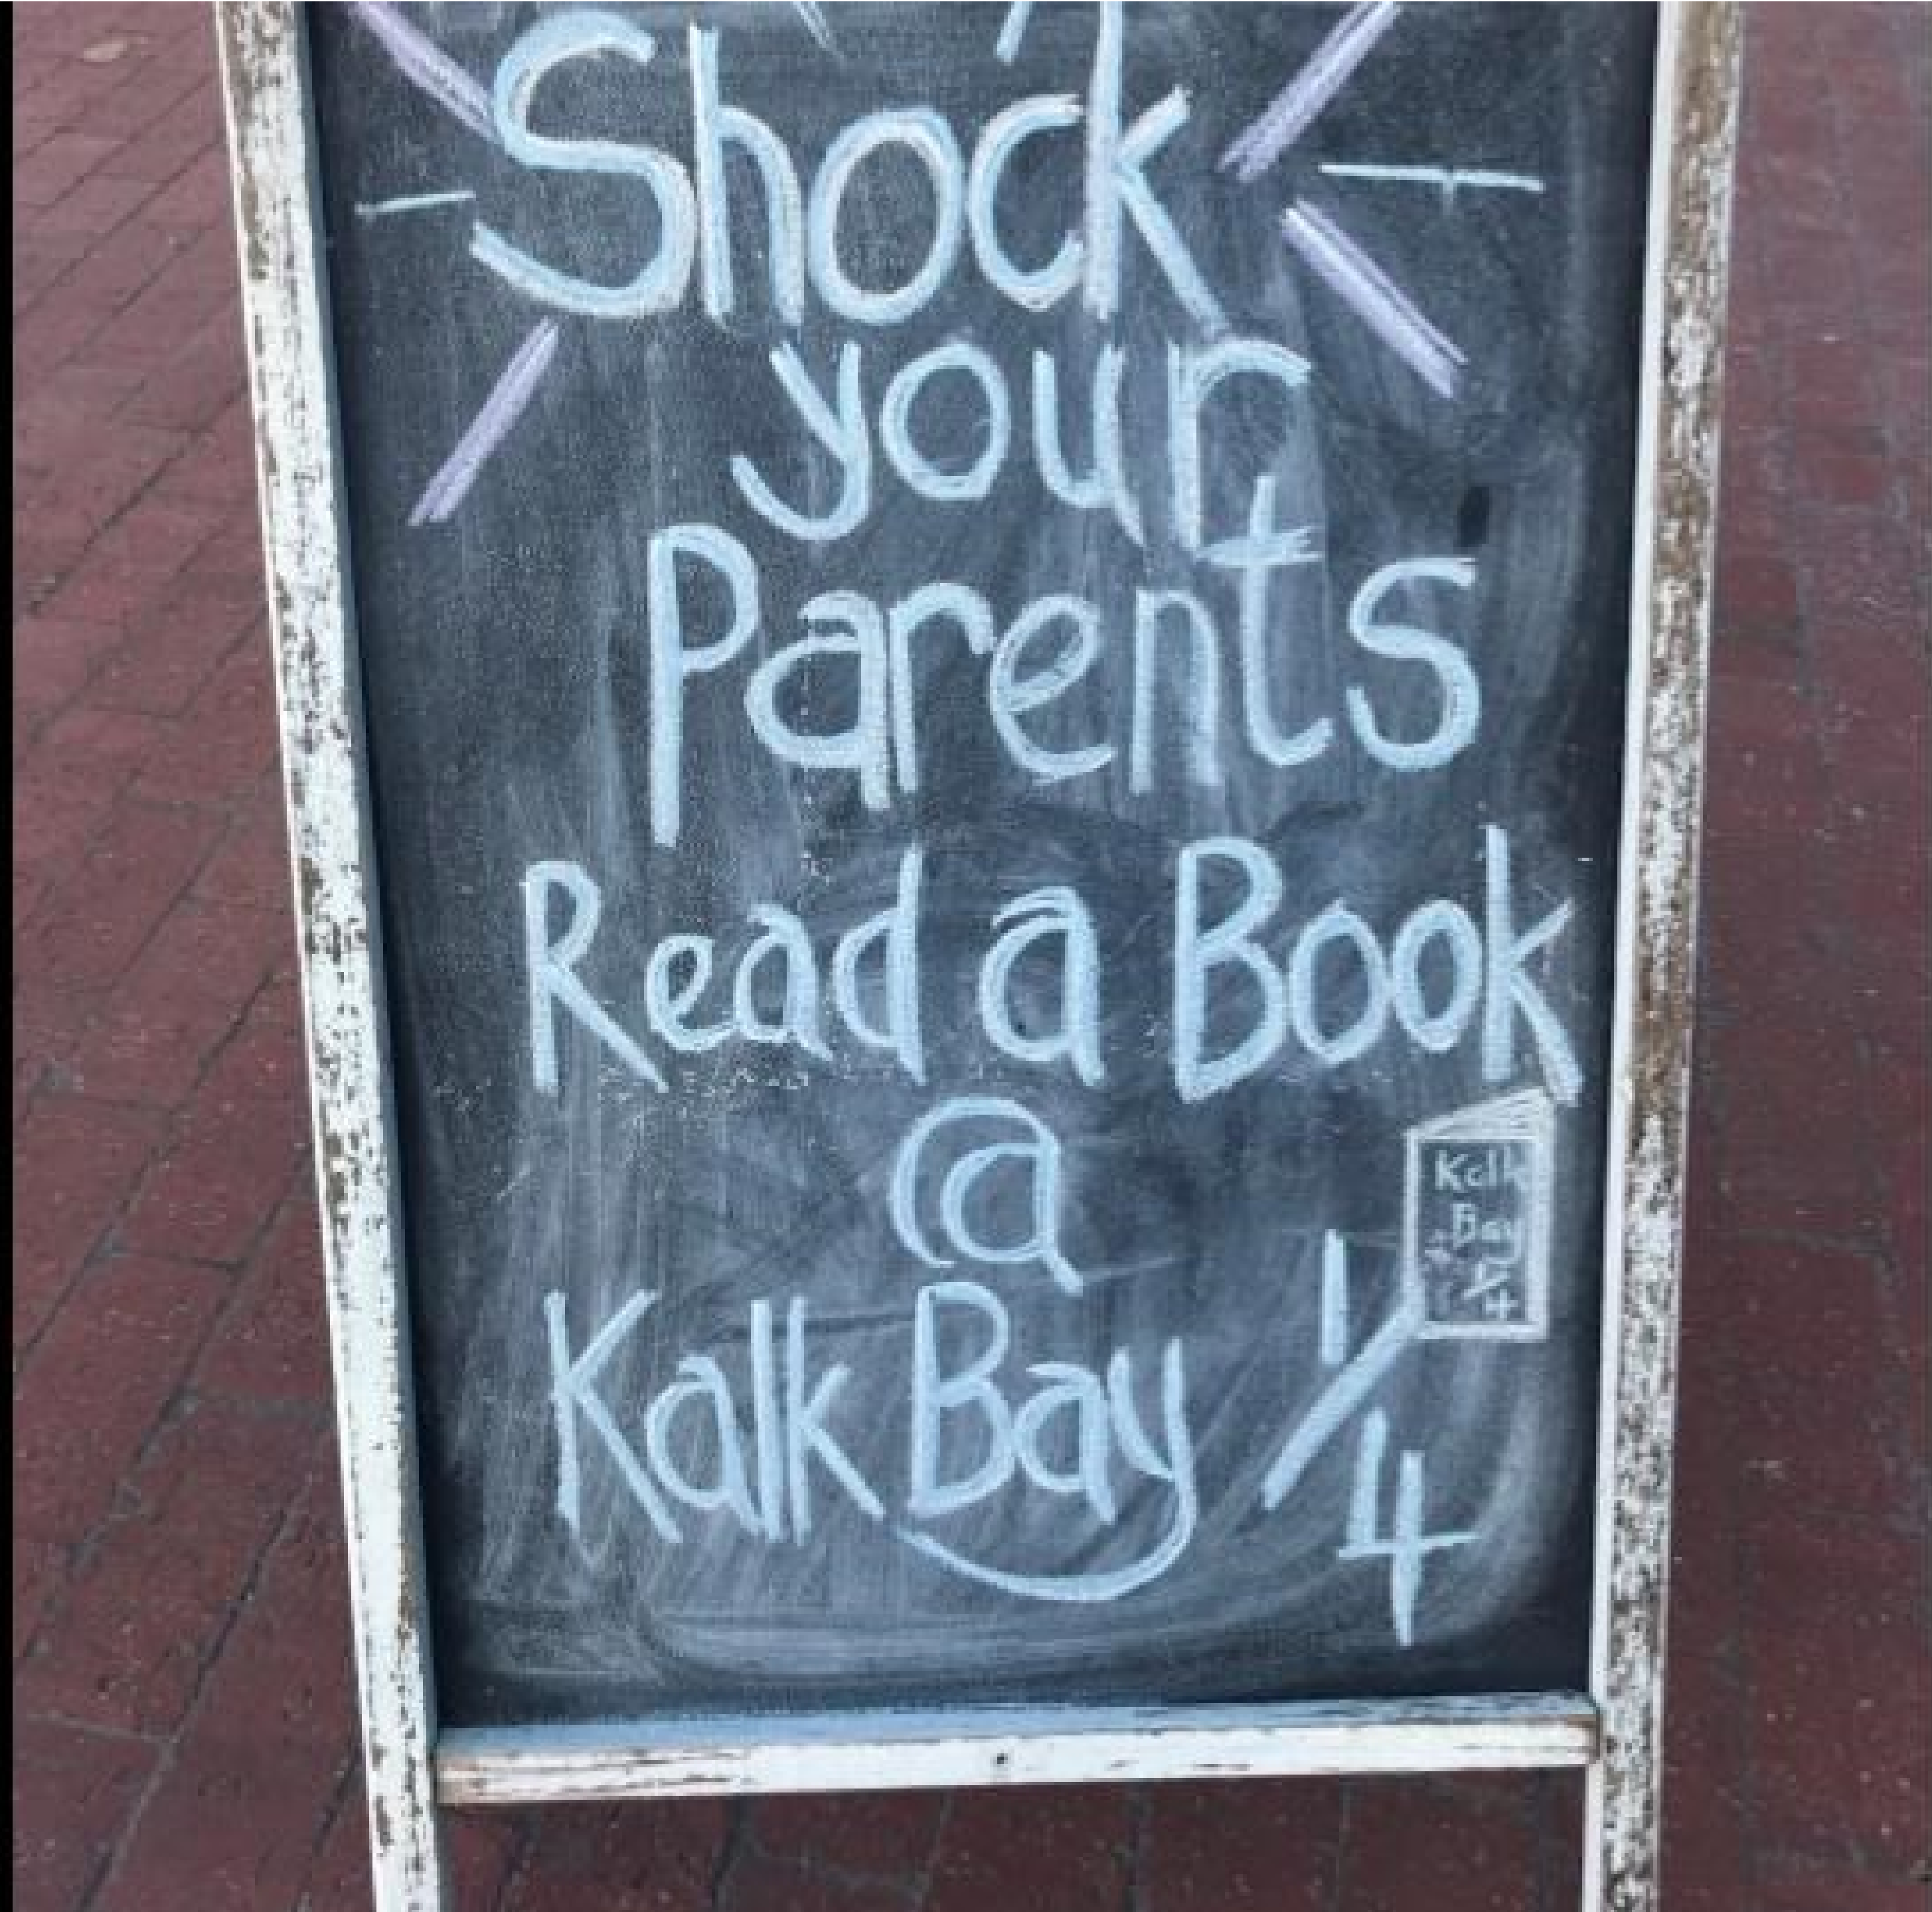 Shock
your
Parents
Read a Book
@
Kalk Bay 1/4
Kalk
Bay
1/4